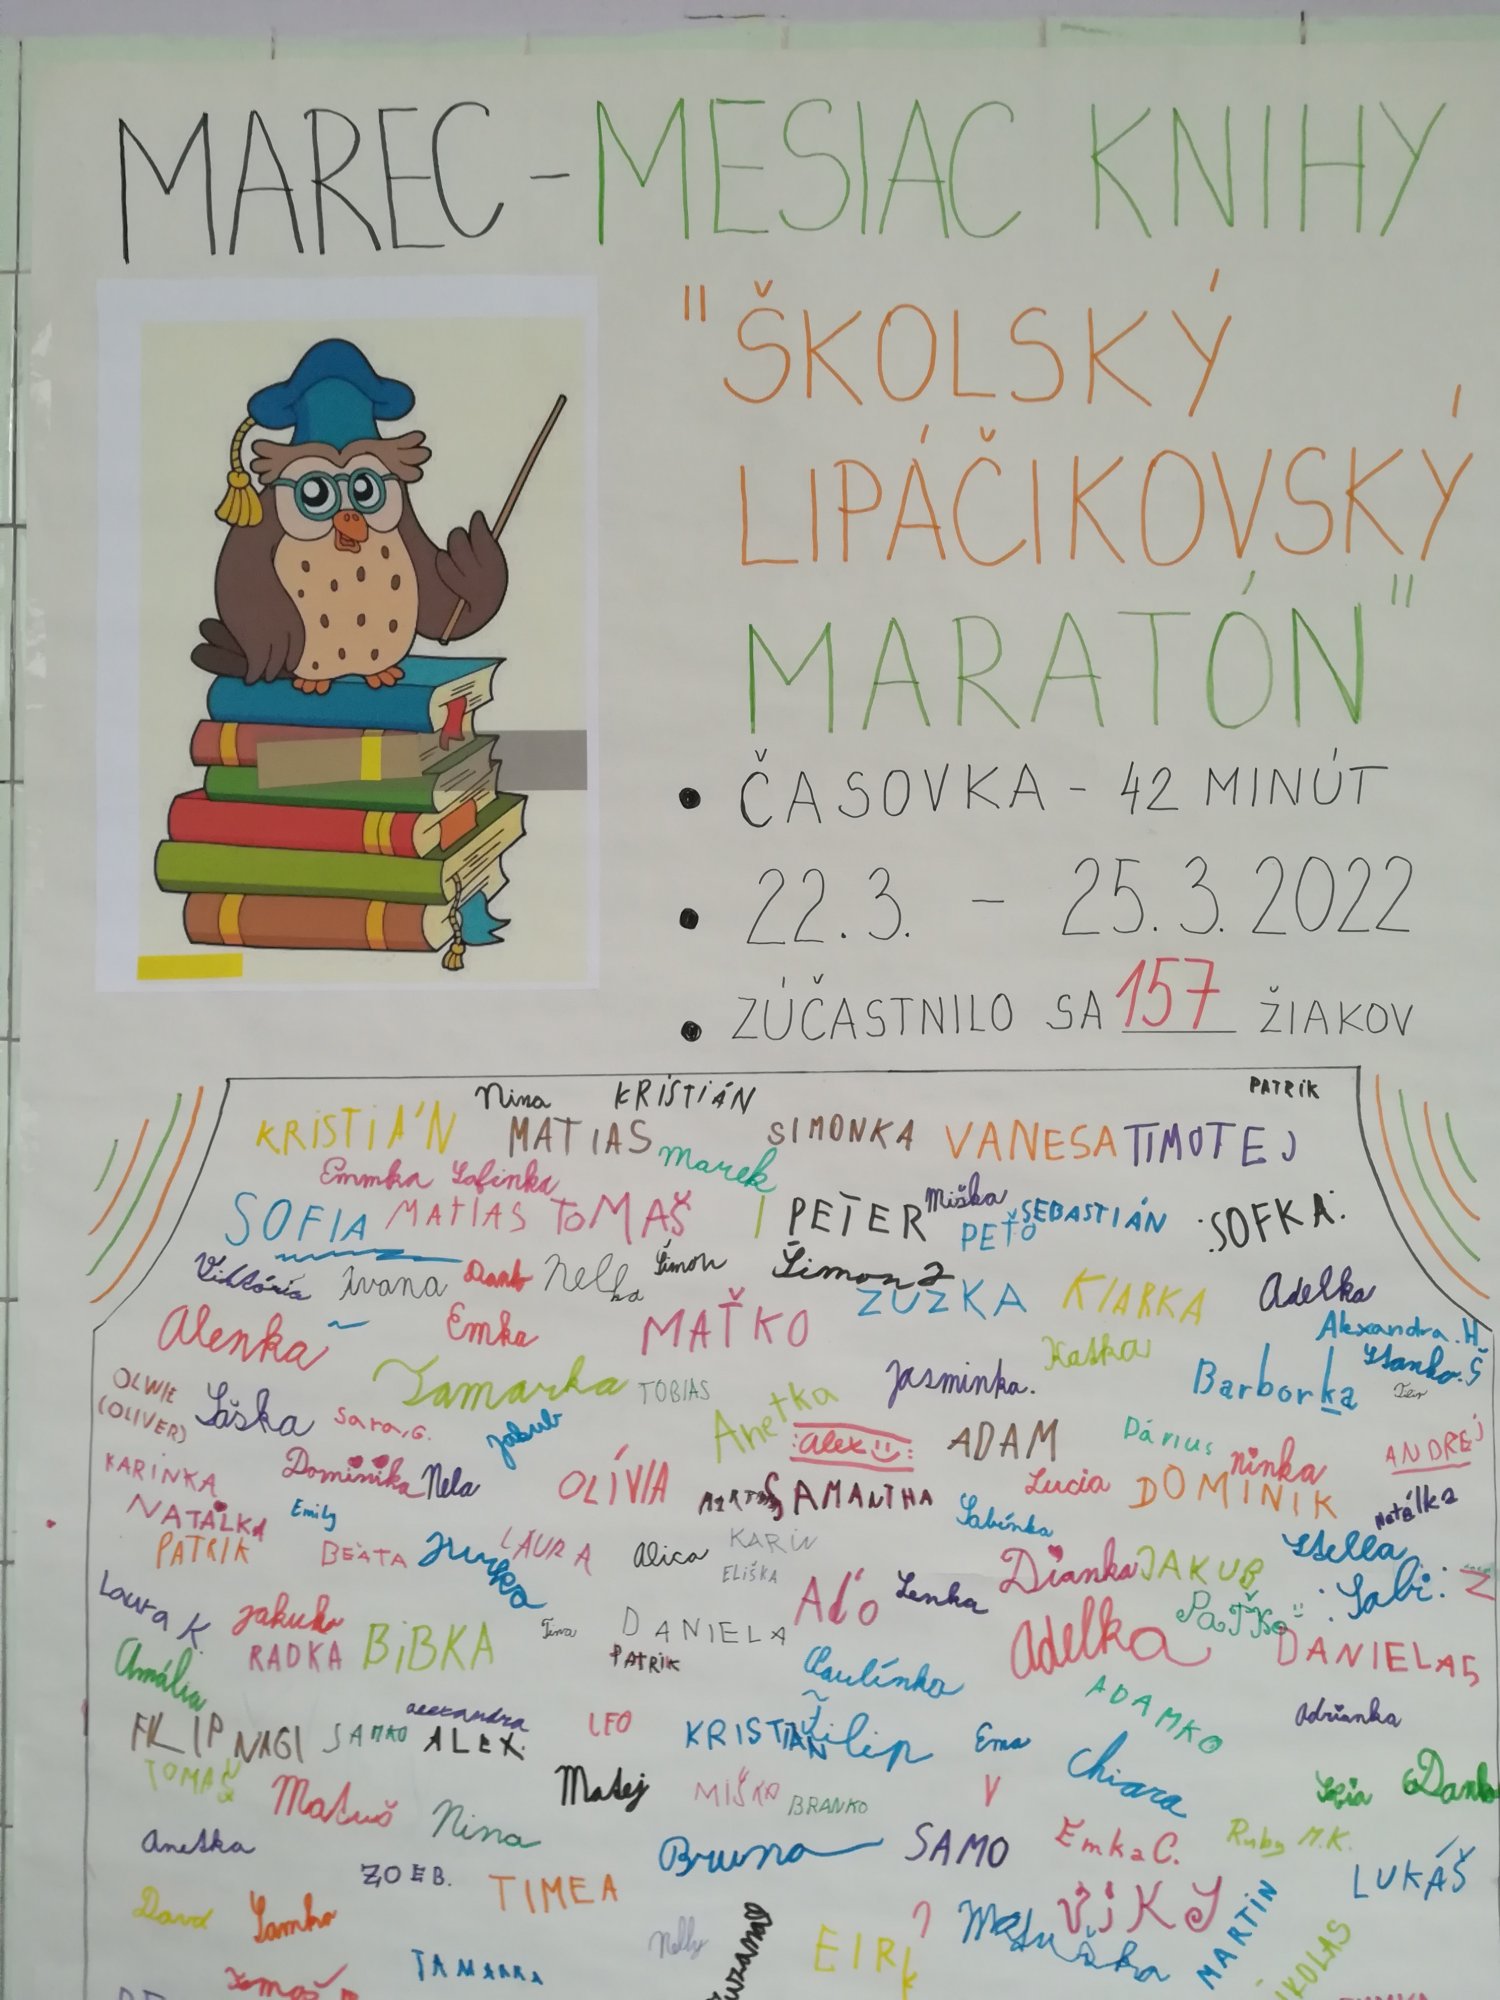 MAREC - MESIAC KNIHY
"ŠKOLSKÝ
LIPÁČIKOVSKÝ
MARATÓN"
• ČASOVKA - 42 MINÚT
• 22.3. - 25.3.2022
• ZÚČASTNILO SA 157 ŽIAKOV
Nina KRISTIÁN PATRIK
KRISTIÁN MATIAS SIMONKA VANESA TIMOTEJ
Emmka Sofinka Marek
SOFIA MATIAS TOMAŠ PETER Miška PEŤO SEBASTIÁN :SOFKA:
Viktória Ivana Danb Nelka Šimon Šimon2 ZUZKA KlARKA Adelka
Alenka Emka MAŤKO Alexandra.H
Tamarka TOBIAS Jasminka. Katka Barborka Stanko.Š
OLWIE (OLIVER) Sáška Sara.G. Jakub Anetka :alex: ADAM Dárius ninka ANDREJ
KARINKA Dominika Nela OLÍVIA SAMANTHA Lucia DOMINIK Natálka
NATÁLKA Emily Sabínka
PATRIK BEÁTA Jurka LAURA Alica KARIN Stella
ELIŠKA Dianka JAKUB :Sabi:
Laura K. Jakub AĎO Lenka PaŤKo
RADKA BiBKA Tina DANIELA Adelka DANIELA5
Amália PATRIK Paulínka ADAMKO
FILIP NAGI SAMKO Alexandra ALEX. LEO KRISTIÁN Filip Ema Adrianka
TOMAŠ Chiara
Matuš Nina Matej MIŠKA BRANKO V Sofia Danb
Anetka Bruno SAMO EmkaC. Ruby M.K.
ZOEB. TIMEA LUKÁŠ
David Samko Nelly ZUZANA EIRI Matuška ViKY MARTIN
Tomaš TAMARA